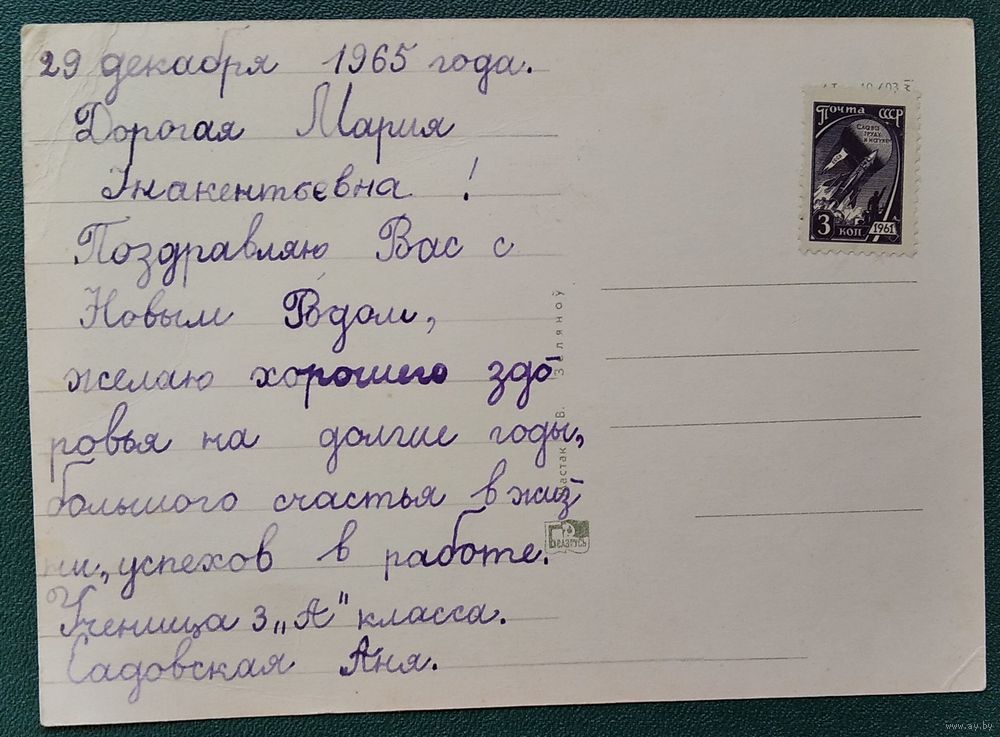 29 декабря 1965 года.
Дорогая Мария
Инакентьевна !
Поздравляю Вас с
Новым Годом,
желаю хорошего здо-
ровья на долгие годы,
большого счастья в жиз-
ни, успехов в работе.
Ученица 3 „А" класса.
Садовская Аня.
Почта СССР
СЛАВА
ТРУДУ
И НАУКЕ!
3 КОП
1961
Мастак В. Зеляноў
БЕЛАРУСЬ
www.ay.by